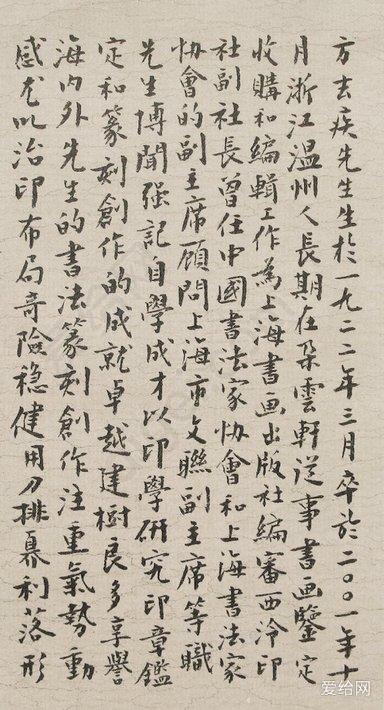 方去疾先生生於一九二二年三月卒於二〇〇一年十
月浙江温州人長期在朵雲軒從事書画鑒定
收購和編輯工作為上海書画出版社編審西泠印
社副社長曾任中國書法家协會和上海書法家
协會的副主席顧問上海市文聯副主席等職
先生博聞强記自學成才以印學研究印章鑑
定和篆刻創作的成就卓越建樹良多享譽
海内外先生的書法篆刻創作注重氣勢動
感尤以治印布局奇險穩健用刀排奡利落形
爱给网